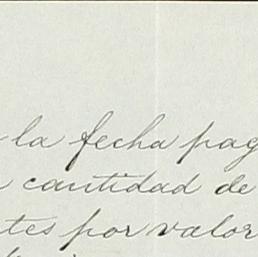 la fecha pag
cantidad de
tes por valor